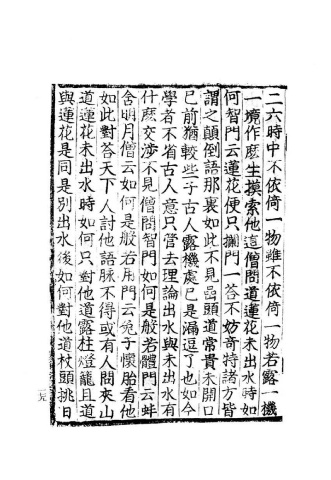 二六時中不依倚一物雖不依倚一物若露一機
一境作麼生摸索他這僧問道蓮花未出水時如
何智門云蓮花便只攔門一答不妨奇特諸方皆
謂之顛倒語那裏如此不見嵒頭道常貴未開口
已前猶較些子古人露機處已是漏逗了也如今
學者不省古人意只管去理論出水與未出水有
什麽交渉不見僧問智門如何是般若體門云蚌
含明月僧云如何是般若用門云兎子懷胎看他
如此對答天下人討他語脉不得或有人問夾山
道蓮花未出水時如何只對他道露柱燈籠且道
與蓮花是同是別出水後如何對他道杖頭挑日